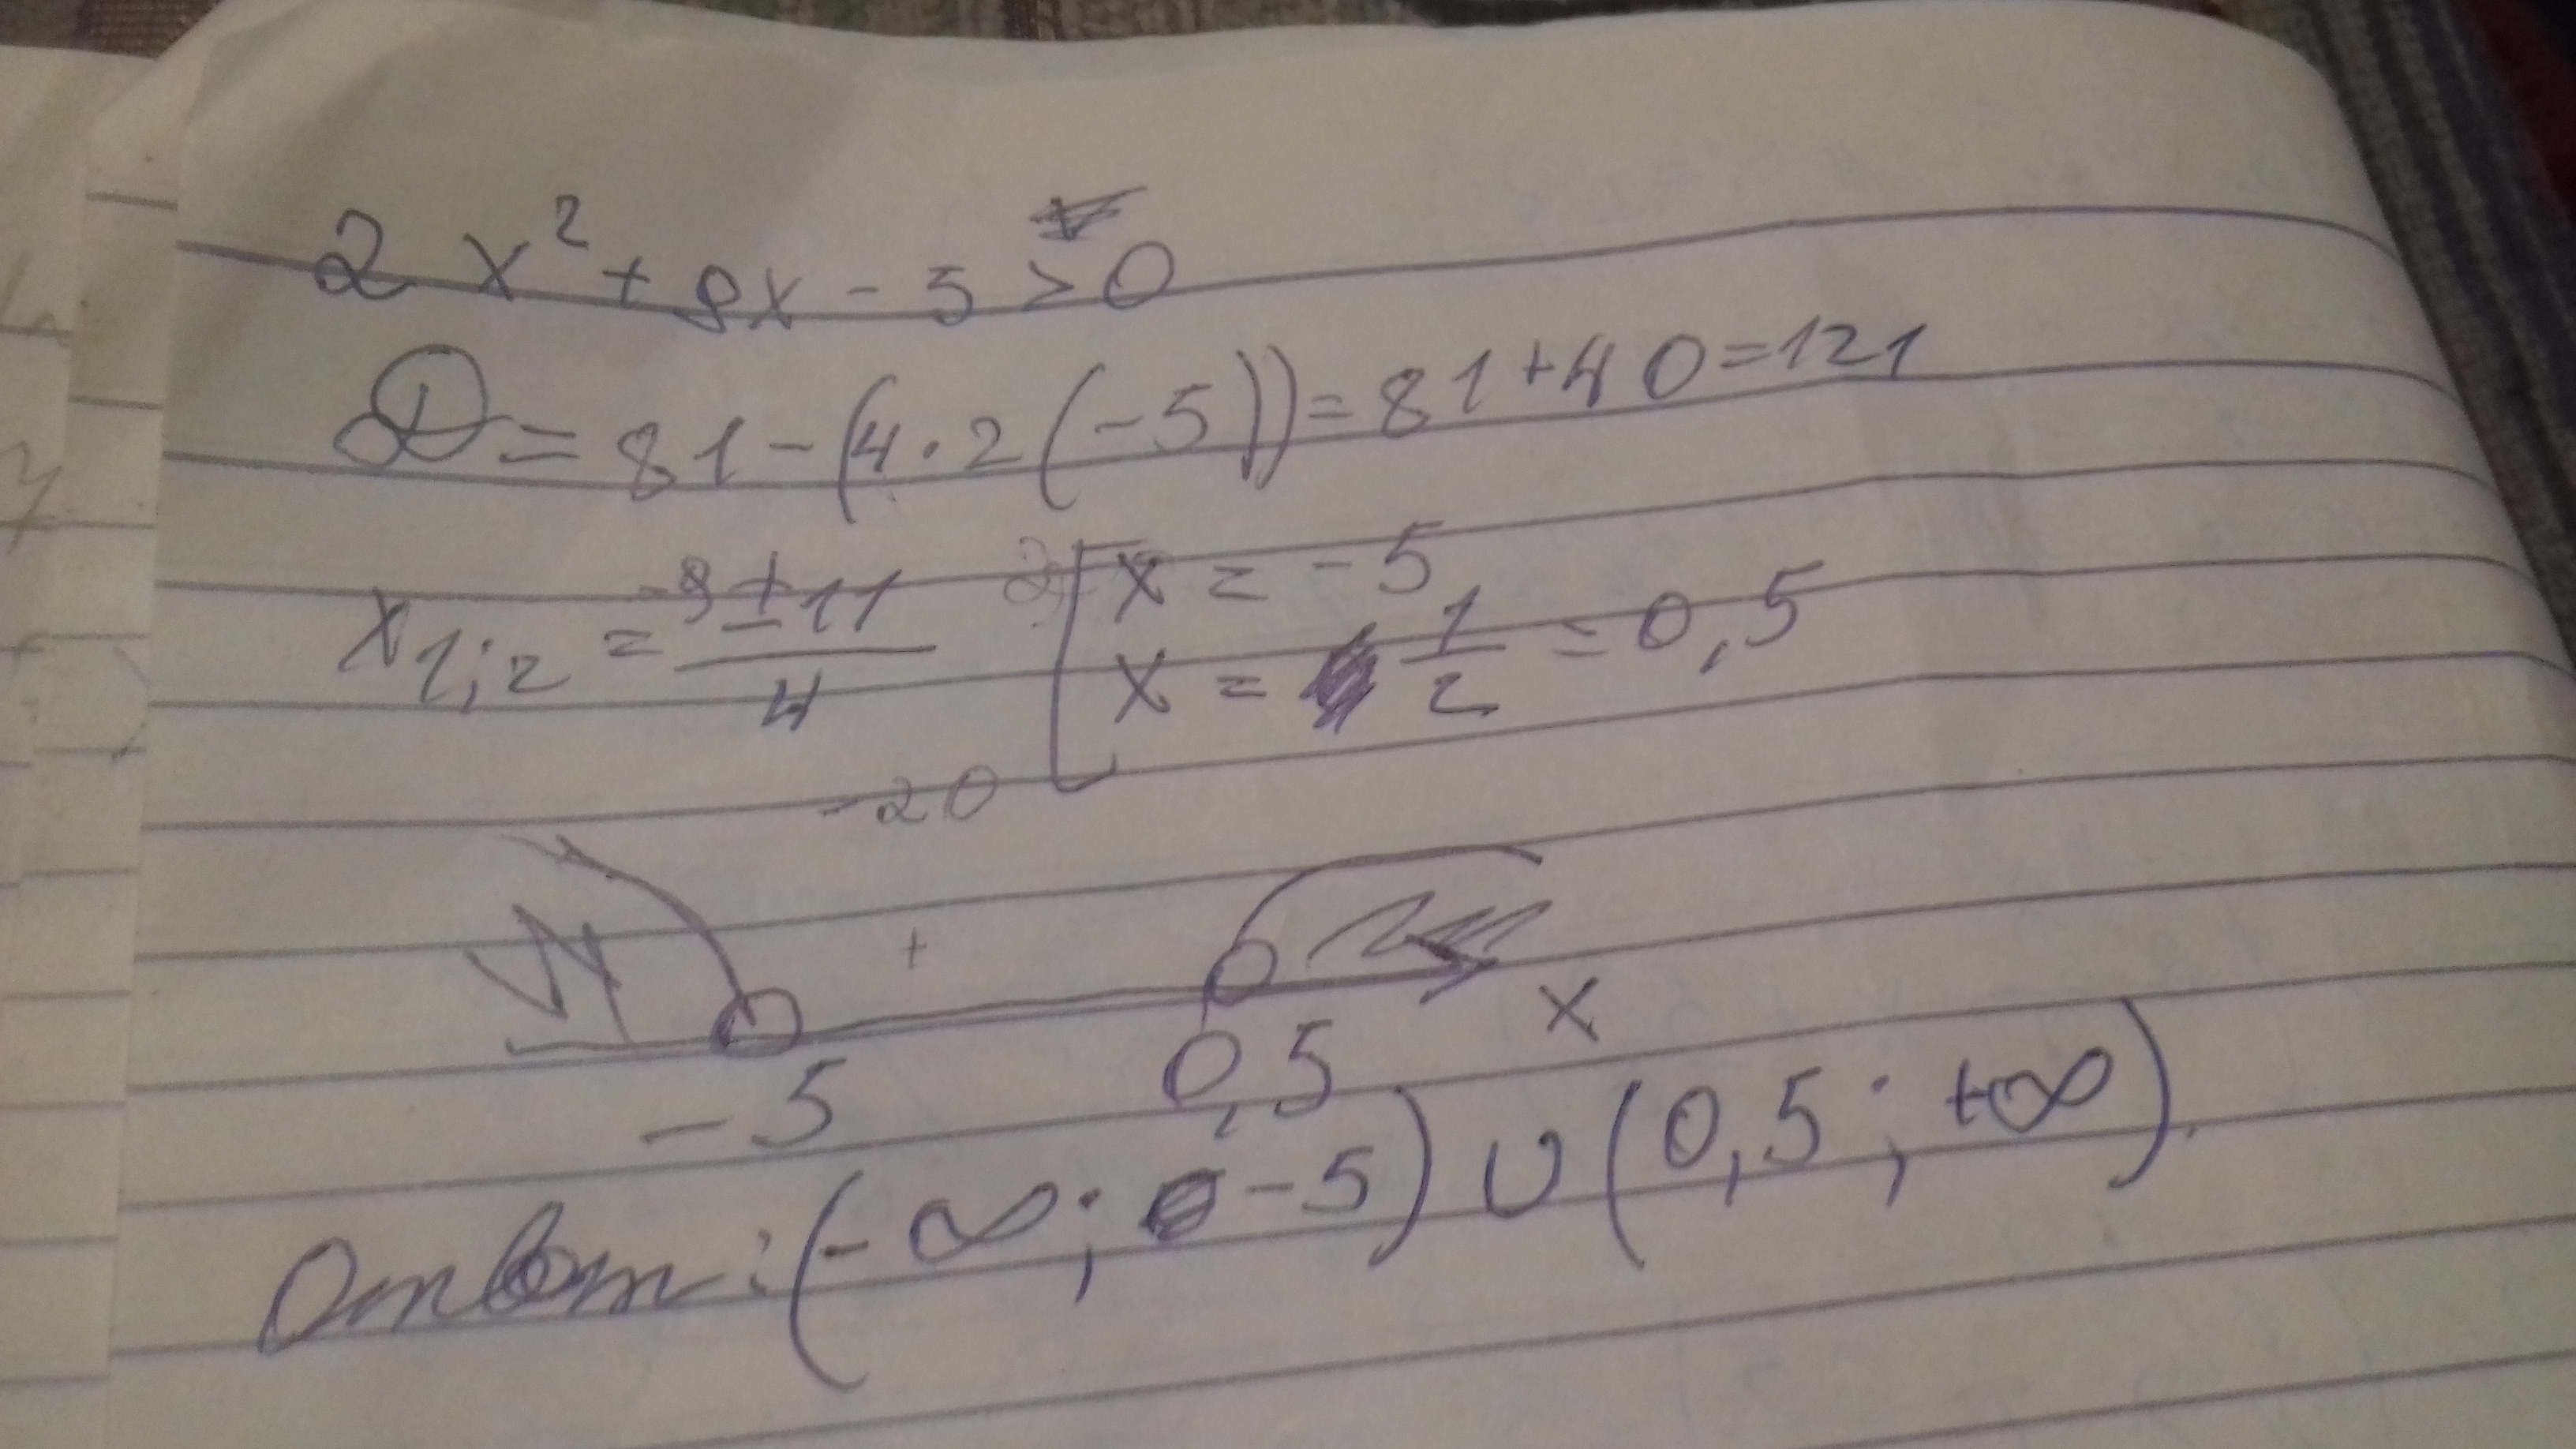 2x² + 9x - 5 > 0
D = 81 - (4 · 2 (-5)) = 81 + 40 = 121
x₁;₂ = (-9 ± 11)/4 [ x = -5
x = 1/2 = 0,5
-20
+
-5 0,5 x
Ответ: (-∞; -5) ∪ (0,5; +∞).